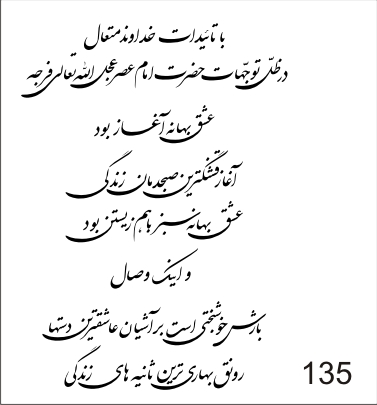 با تائیدات خداوند متعال
در ظلّ توجّهات حضرت امام عصر عجل الله تعالی فرجه
عشق بهانه آغاز بود
آغاز قشنگترین صبحدمان زندگی
عشق بهانه سبز باهم زیستن بود
و اینک وصال
بارش خوشبختی است بر آشیان عاشقترین دستها
رونق بهاری ترین ثانیه های زندگی
135